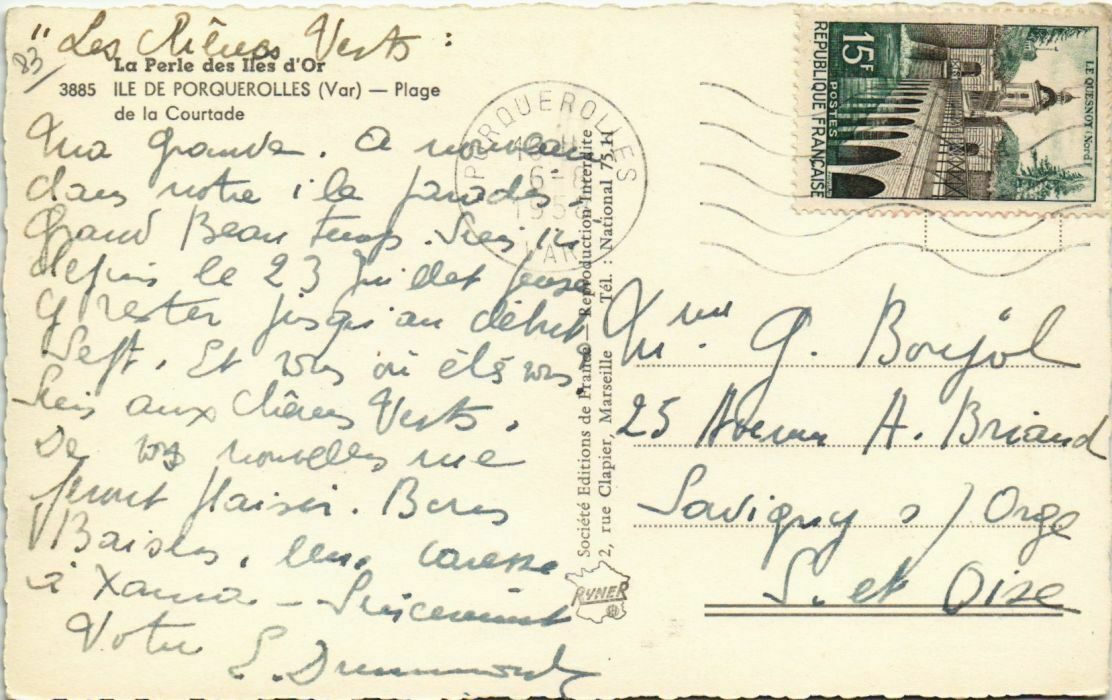 83
"Les Chênes Verts :
La Perle des Iles d'Or
3885 ILE DE PORQUEROLLES (Var) — Plage
de la Courtade
Ma Grande. A nouveau
dans notre ile paradis.
Grand Beau temps. Suis ici
depuis le 23 Juillet pense
y rester jusqu'au début
Sept. Et vous où êtes vous,
Suis aux Chênes Verts.
De vos nouvelles me
feront plaisir. Bons
Baisers, une caresse
à Xanra - Sincèrement
Votre
PORQUEROLLES
6-8
1958
VAR
Société Editions de France — Reproduction Interdite
2, rue Clapier, Marseille Tél. : National 75.11
RYNER
15F
POSTES
REPUBLIQUE FRANÇAISE
LE QUESNOY (Nord)
Mme. G. Boujol
25 Avenue A. Briand
Savigny s/Orge
S. et Oise